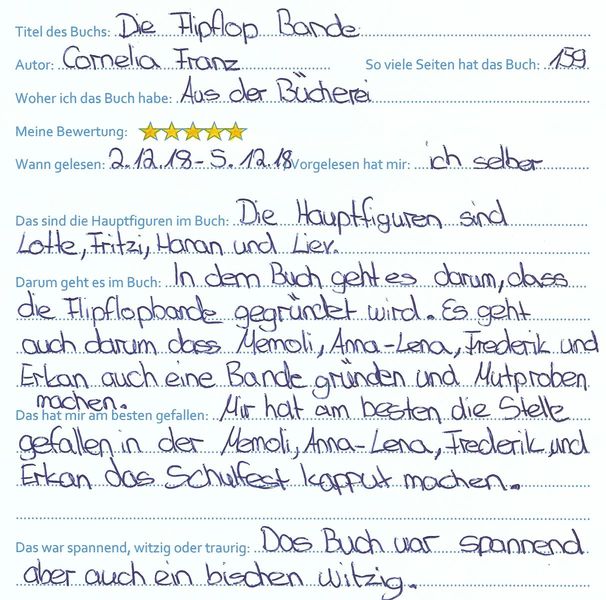 Titel des Buchs: Die Flipflop Bande
Autor: Cornelia Franz So viele Seiten hat das Buch: 159
Woher ich das Buch habe: Aus der Bücherei
Meine Bewertung:
Wann gelesen: 2.12.18-5.12.18 Vorgelesen hat mir: ich selber
Das sind die Hauptfiguren im Buch: Die Hauptfiguren sind
Lotte, Fritzi, Hanan und Liev.
Darum geht es im Buch: In dem Buch geht es darum, dass
die Flipflopbande gegründet wird. Es geht
auch darum dass Memoli, Anna-Lena, Frederik und
Erkan auch eine Bande gründen und Mutproben
machen.
Das hat mir am besten gefallen: Mir hat am besten die Stelle
gefallen in der Memoli, Anna-Lena, Frederik und
Erkan das Schulfest kapput machen.
Das war spannend, witzig oder traurig: Das Buch war spannend
aber auch ein bischen witzig.